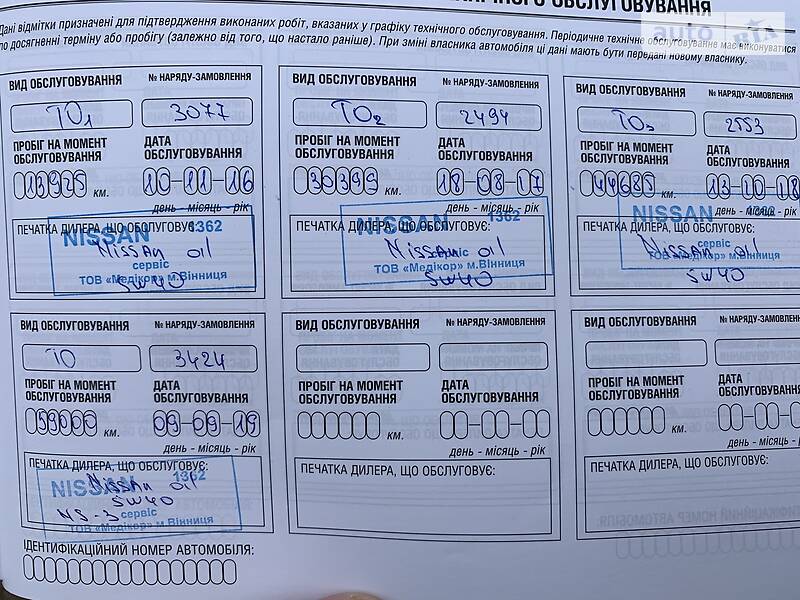 ОБСЛУГОВУВАННЯ
auto RIA
Дані відмітки призначені для підтвердження виконаних робіт, вказаних у графіку технічного обслуговування. Періодичне технічне обслуговування має виконуватися
по досягненні терміну або пробігу (залежно від того, що настало раніше). При зміні власника автомобіля ці дані мають бути передані новому власнику.
ВИД ОБСЛУГОВУВАННЯ № НАРЯДУ-ЗАМОВЛЕННЯ
ТО1 3077
ПРОБІГ НА МОМЕНТ ОБСЛУГОВУВАННЯ
ДАТА ОБСЛУГОВУВАННЯ
013925 км. 10-11-16
день - місяць - рік
ПЕЧАТКА ДИЛЕРА, ЩО ОБСЛУГОВУЄ:
NISSAN 1362
Nissan oil
сервіс
5W40
ТОВ «Медікор» м.Вінниця
ВИД ОБСЛУГОВУВАННЯ № НАРЯДУ-ЗАМОВЛЕННЯ
ТО2 2494
ПРОБІГ НА МОМЕНТ ОБСЛУГОВУВАННЯ
ДАТА ОБСЛУГОВУВАННЯ
030399 км. 18-08-17
день - місяць - рік
ПЕЧАТКА ДИЛЕРА, ЩО ОБСЛУГОВУЄ:
NISSAN 1362
Nissan oil
сервіс
ТОВ «Медікор» м.Вінниця
5W40
ВИД ОБСЛУГОВУВАННЯ № НАРЯДУ-ЗАМОВЛЕННЯ
ТО3 2553
ПРОБІГ НА МОМЕНТ ОБСЛУГОВУВАННЯ
ДАТА ОБСЛУГОВУВАННЯ
044685 км. 13-10-18
день - місяць - рік
ПЕЧАТКА ДИЛЕРА, ЩО ОБСЛУГОВУЄ:
NISSAN 1362
Nissan oil
сервіс
ТОВ «Медікор» м.Вінниця
5W40
ВИД ОБСЛУГОВУВАННЯ № НАРЯДУ-ЗАМОВЛЕННЯ
ТО 3424
ПРОБІГ НА МОМЕНТ ОБСЛУГОВУВАННЯ
ДАТА ОБСЛУГОВУВАННЯ
059000 км. 09-09-19
день - місяць - рік
ПЕЧАТКА ДИЛЕРА, ЩО ОБСЛУГОВУЄ:
NISSAN 1362
Nissan oil
5W40
NS-3
сервіс
ТОВ «Медікор» м.Вінниця
ВИД ОБСЛУГОВУВАННЯ № НАРЯДУ-ЗАМОВЛЕННЯ
ПРОБІГ НА МОМЕНТ ОБСЛУГОВУВАННЯ
ДАТА ОБСЛУГОВУВАННЯ
км.
день - місяць - рік
ПЕЧАТКА ДИЛЕРА, ЩО ОБСЛУГОВУЄ:
ВИД ОБСЛУГОВУВАННЯ № НАРЯДУ-ЗАМОВЛЕННЯ
ПРОБІГ НА МОМЕНТ ОБСЛУГОВУВАННЯ
ДАТА ОБСЛУГОВУВАННЯ
км.
день - місяць - рік
ПЕЧАТКА ДИЛЕРА, ЩО ОБСЛУГОВУЄ:
ІДЕНТИФІКАЦІЙНИЙ НОМЕР АВТОМОБІЛЯ: